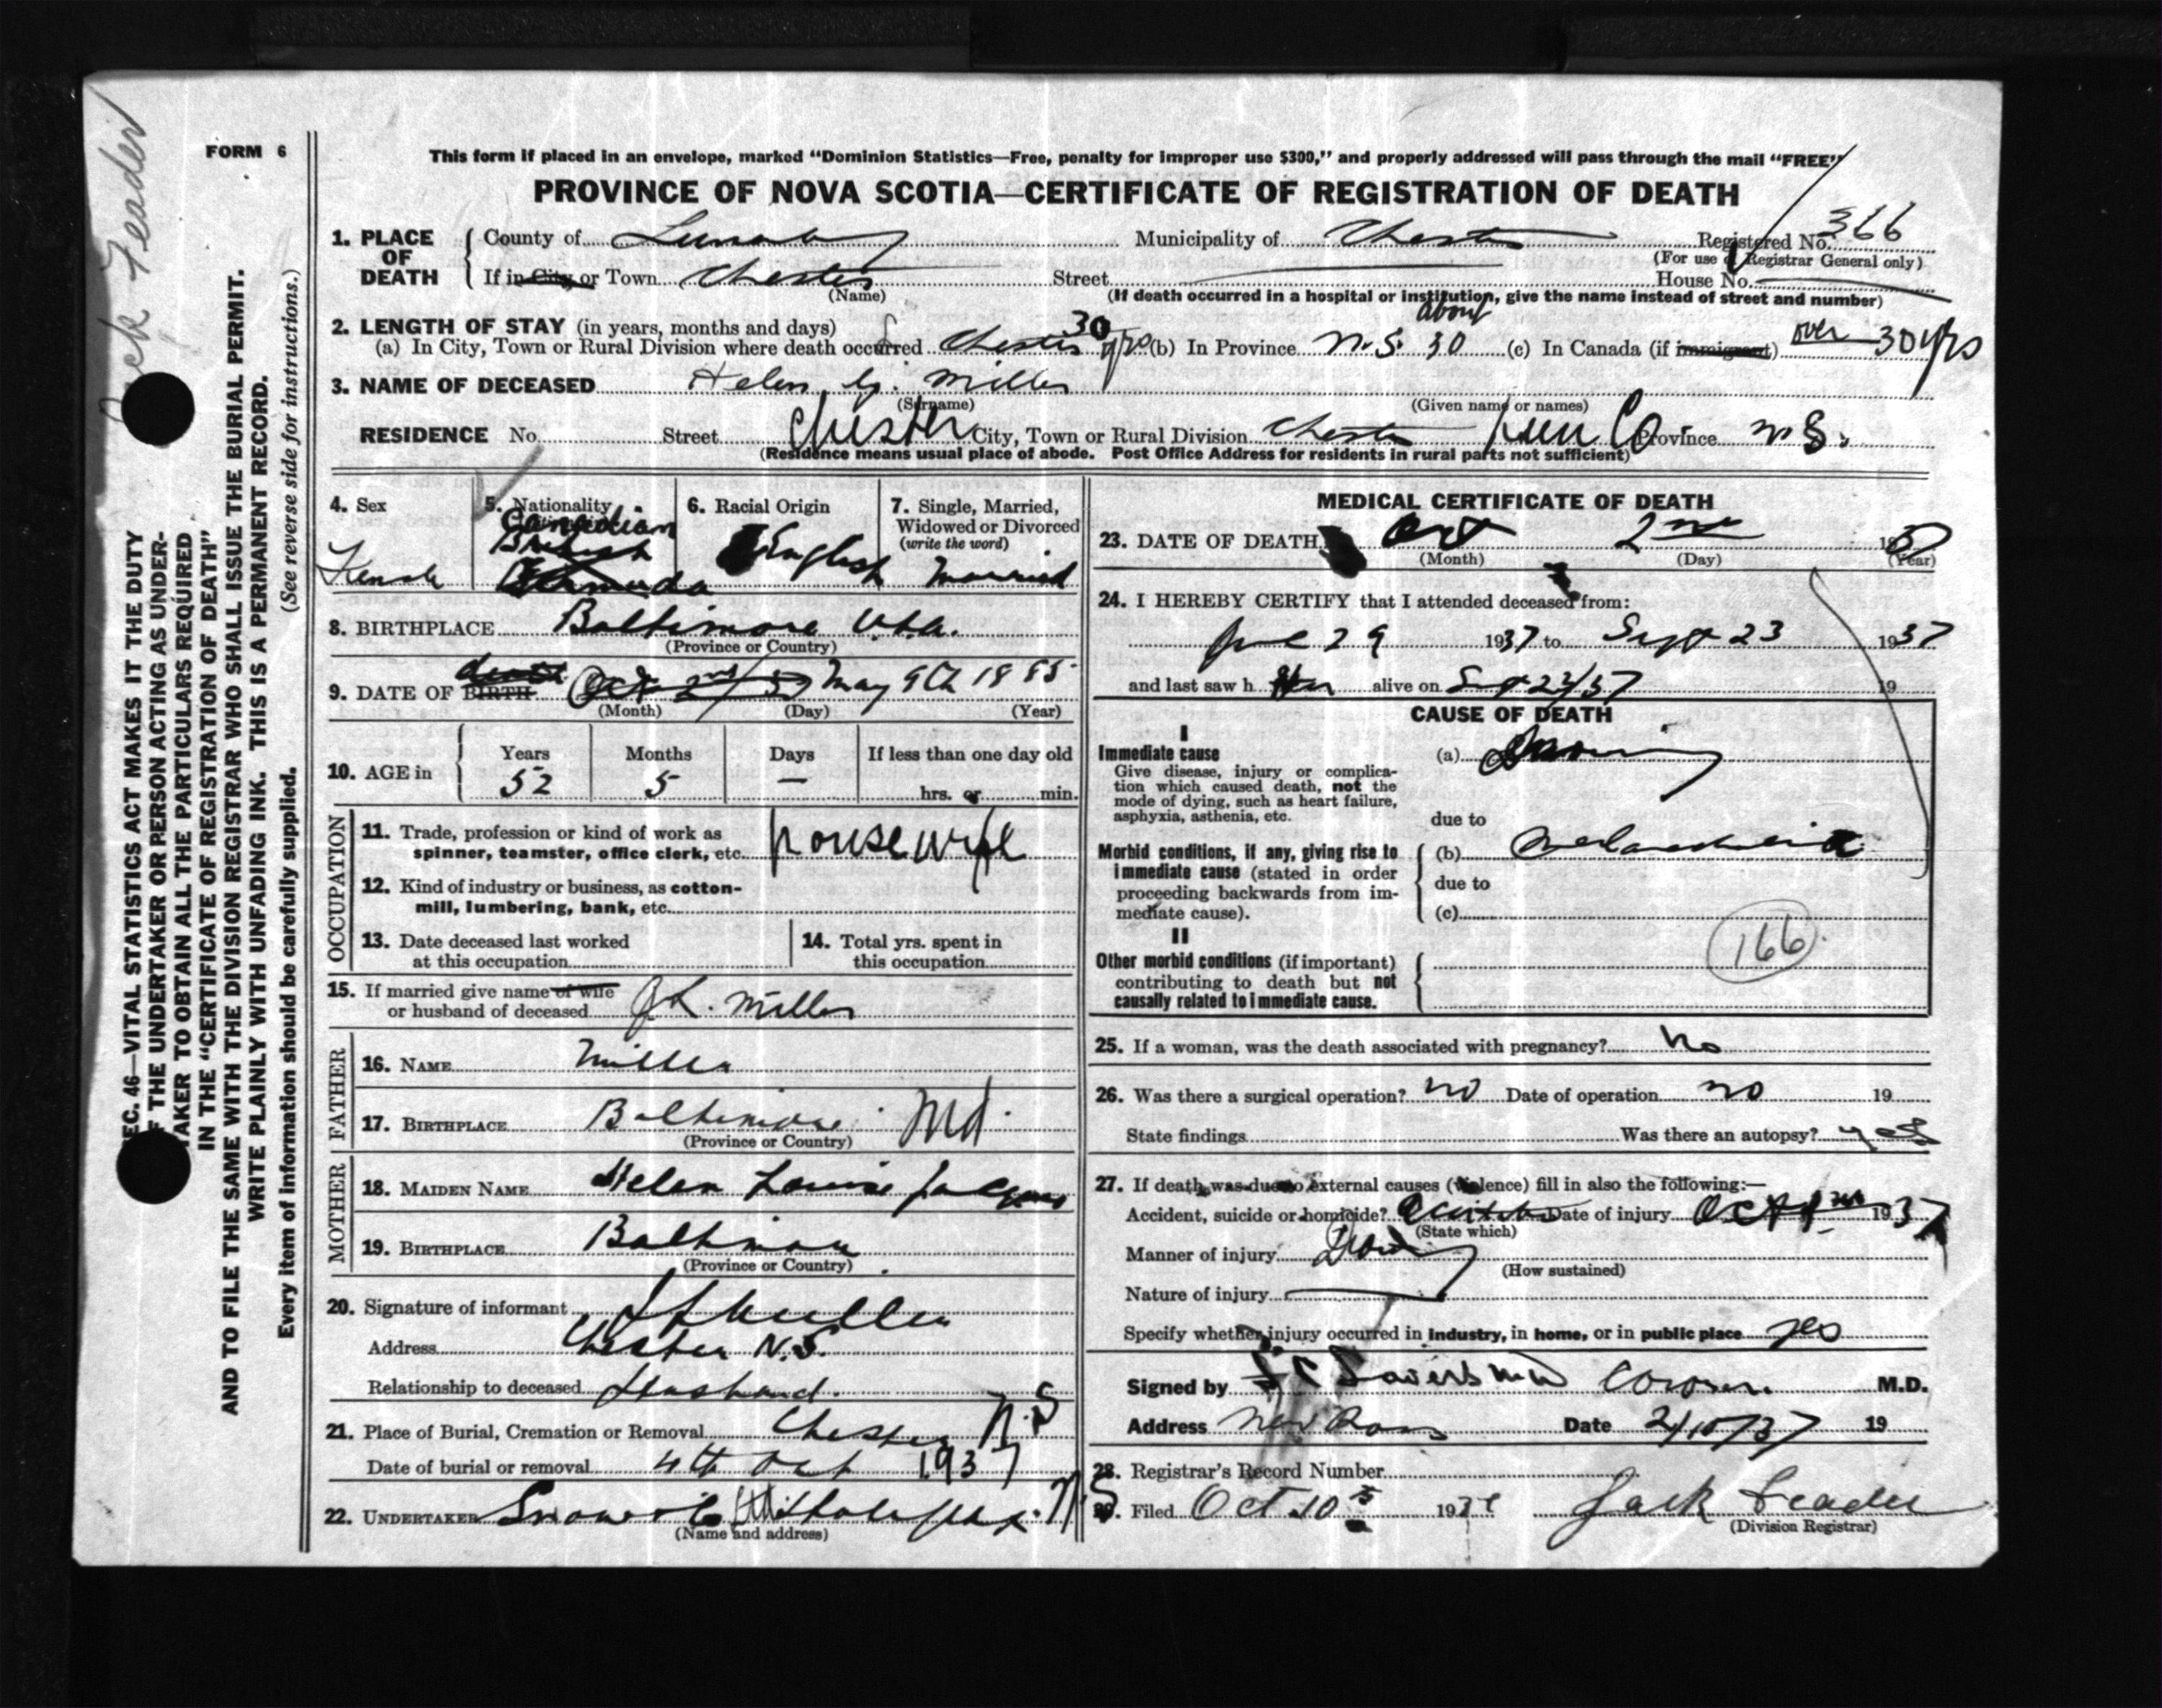 FORM 6
This form if placed in an envelope, marked "Dominion Statistics—Free, penalty for improper use $300," and properly addressed will pass through the mail "FREE"
PROVINCE OF NOVA SCOTIA—CERTIFICATE OF REGISTRATION OF DEATH
1. PLACE OF DEATH { County of Municipality of Chester Registered No. 366
(For use of Registrar General only)
If in City or Town Chester Street House No.
(Name) (If death occurred in a hospital or institution, give the name instead of street and number)
2. LENGTH OF STAY (in years, months and days)
(a) In City, Town or Rural Division where death occurred Chester 30 yrs (b) In Province N.S. about 30 (c) In Canada (if immigrant) over 30 yrs
3. NAME OF DECEASED Helen G. Miller
(Surname) (Given name or names)
RESIDENCE No. Street Chester City, Town or Rural Division Chester Lun Co Province N.S.
(Residence means usual place of abode. Post Office Address for residents in rural parts not sufficient)
4. Sex
Female
5. Nationality
Canadian
British
Bermuda
6. Racial Origin
English
7. Single, Married, Widowed or Divorced
(write the word)
married
8. BIRTHPLACE Baltimore U.S.A.
(Province or Country)
9. DATE OF BIRTH death Oct 2nd/37 May 9th 1885
(Month) (Day) (Year)
10. AGE in { Years Months Days If less than one day old
52 5 — hrs. or min.
OCCUPATION
11. Trade, profession or kind of work as
spinner, teamster, office clerk, etc. housewife
12. Kind of industry or business, as cotton-
mill, lumbering, bank, etc.
13. Date deceased last worked
at this occupation
14. Total yrs. spent in
this occupation
15. If married give name of wife
or husband of deceased Miller
FATHER
16. NAME Miller
17. BIRTHPLACE Baltimore Md.
(Province or Country)
MOTHER
18. MAIDEN NAME Helen Louise
19. BIRTHPLACE Baltimore
(Province or Country)
20. Signature of informant
Address Chester N.S.
Relationship to deceased Husband.
21. Place of Burial, Cremation or Removal Chester N.S
Date of burial or removal 4th Oct 1937
22. UNDERTAKER Snow & Co Ltd Halifax. N.S
(Name and address)
MEDICAL CERTIFICATE OF DEATH
23. DATE OF DEATH Oct 2nd 1937
(Month) (Day) (Year)
24. I HEREBY CERTIFY that I attended deceased from:
29 1937 to Sept 23 1937
and last saw her alive on Sept 23/37 19
CAUSE OF DEATH
I
Immediate cause (a) Drowning
Give disease, injury or complica-
tion which caused death, not the
mode of dying, such as heart failure,
asphyxia, asthenia, etc.
due to
Morbid conditions, if any, giving rise to (b) Melancholia
immediate cause (stated in order due to
proceeding backwards from im-
mediate cause). (c)
II
166
Other morbid conditions (if important)
contributing to death but not
causally related to immediate cause.
25. If a woman, was the death associated with pregnancy? no
26. Was there a surgical operation? no Date of operation no 19
State findings Was there an autopsy? yes
27. If death was due to external causes (violence) fill in also the following:—
Accident, suicide or homicide? Date of injury Oct 1937
(State which)
Manner of injury Drowning
(How sustained)
Nature of injury
Specify whether injury occurred in industry, in home, or in public place yes
Signed by Coroner. M.D.
Address New Ross Date 2/10/37 19
28. Registrar's Record Number
29. Filed Oct 10th 1937 Jack Leader
(Division Registrar)
SEC. 46—VITAL STATISTICS ACT MAKES IT THE DUTY
OF THE UNDERTAKER OR PERSON ACTING AS UNDER-
TAKER TO OBTAIN ALL THE PARTICULARS REQUIRED
IN THE "CERTIFICATE OF REGISTRATION OF DEATH"
AND TO FILE THE SAME WITH THE DIVISION REGISTRAR WHO SHALL ISSUE THE BURIAL PERMIT.
WRITE PLAINLY WITH UNFADING INK. THIS IS A PERMANENT RECORD.
Every item of information should be carefully supplied. (See reverse side for instructions.)